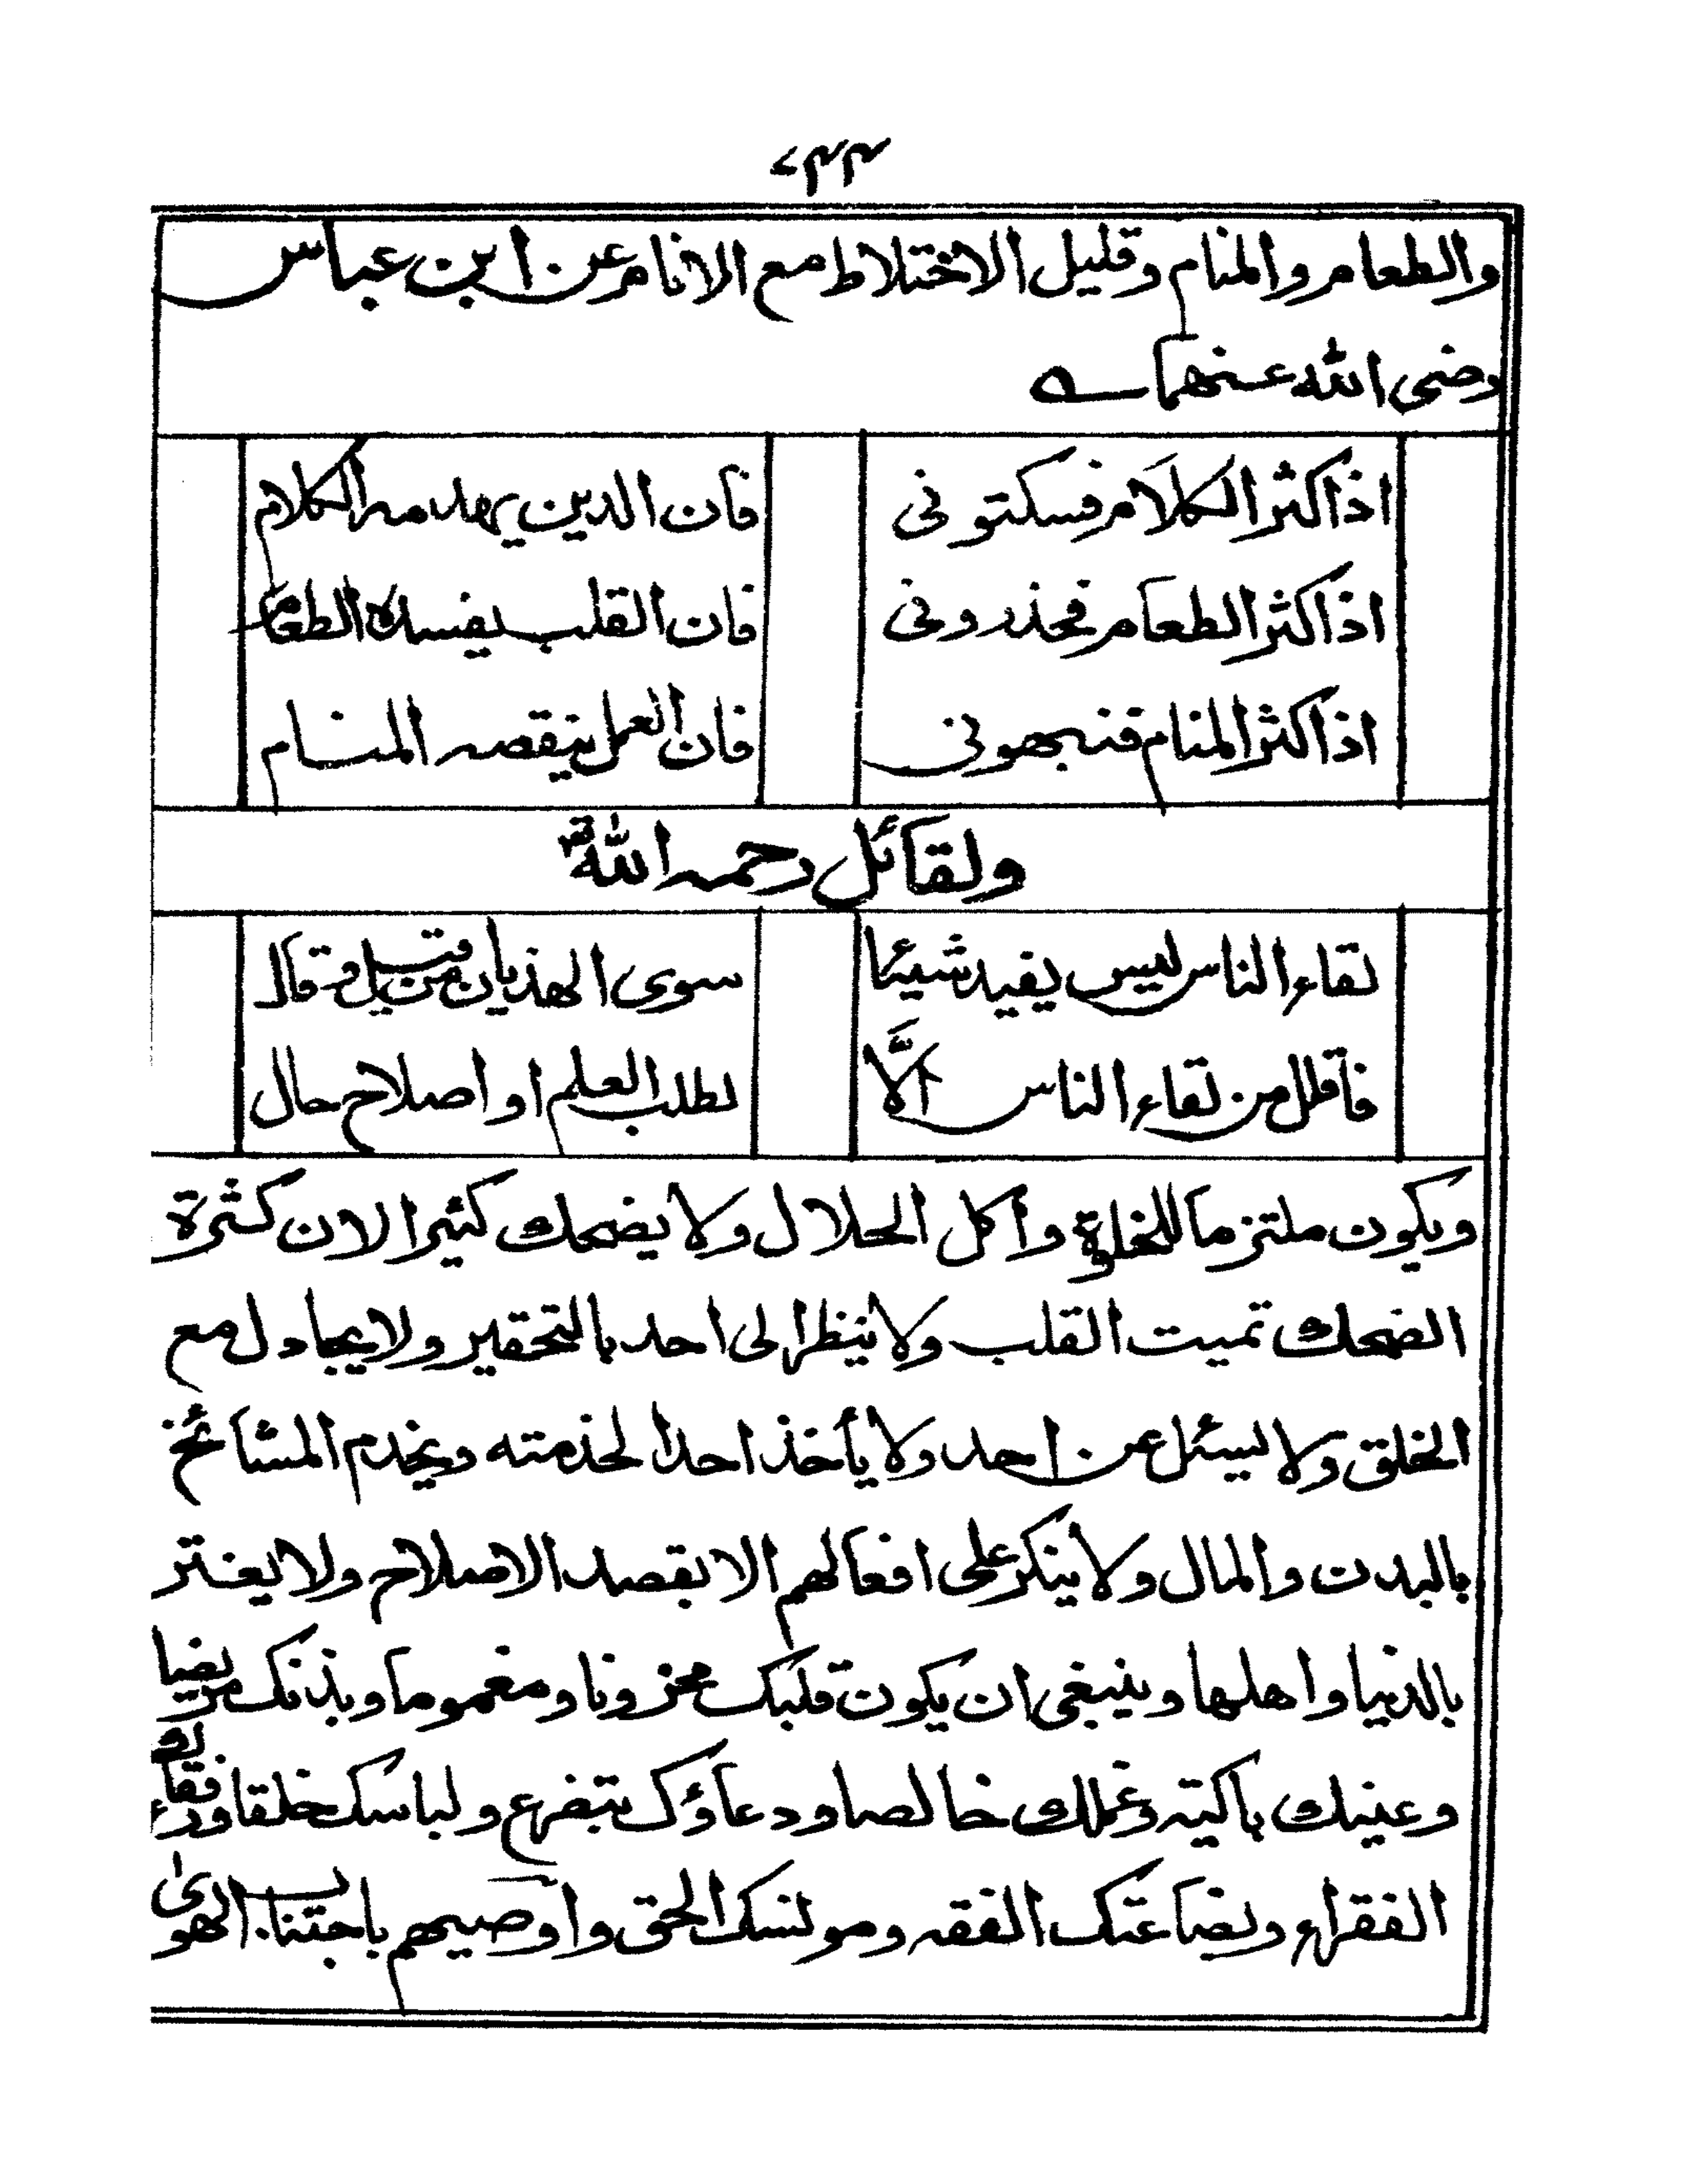 والطعام والمنام وقليل الاختلاط مع الانام عن ابن عباس
رضى الله عنهما
اذا كثر الكلام فسكتونى فان الدين يهدمه الكلام
اذا كثر الطعام فحذرونى فان القلب يفسده الطعام
اذا كثر المنام فنبهونى فان العمل ينقصه المنام
ولقائل رحمه الله
لقاء الناس ليس يفيد شيئا سوى الهذيان من قيل وقال
فأقلل من لقاء الناس الّا لطلب العلم او اصلاح حال
ويكون ملتزما للخلوة وأكل الحلال ولا يضحك كثيرا لان كثرة
الضحك تميت القلب ولا ينظر الى احد بالتحقير ولا يجادل مع
الخلق ولا يسئل عن احد ولا يأخذ احدا لخدمته ويخدم المشائخ
بالبدن والمال ولا ينكر على افعالهم الا بقصد الاصلاح ولا يغتر
بالدنيا واهلها وينبغى ان يكون قلبك محزونا ومغموما وبدنك مريضا
وعينك باكية وعملك خالصا ودعاؤك بتضرع ولباسك خلقا ورفقاؤك
الفقراء وبضاعتك الفقه ومونسك الحق واوصيهم باجتناب الهوىٰ